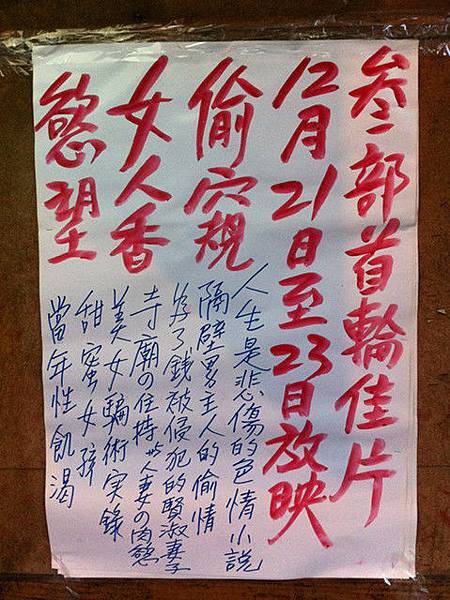 叁部首輪佳片
12月21日至23日放映
偷穴窺
女人香
慾望
人生是悲傷的色情小說
隔壁男主人的偷情
為了錢被侵犯的賢淑妻子
寺廟の住持與人妻の肉慾
美女騙術実錄
甜蜜女孩
當年性飢渴